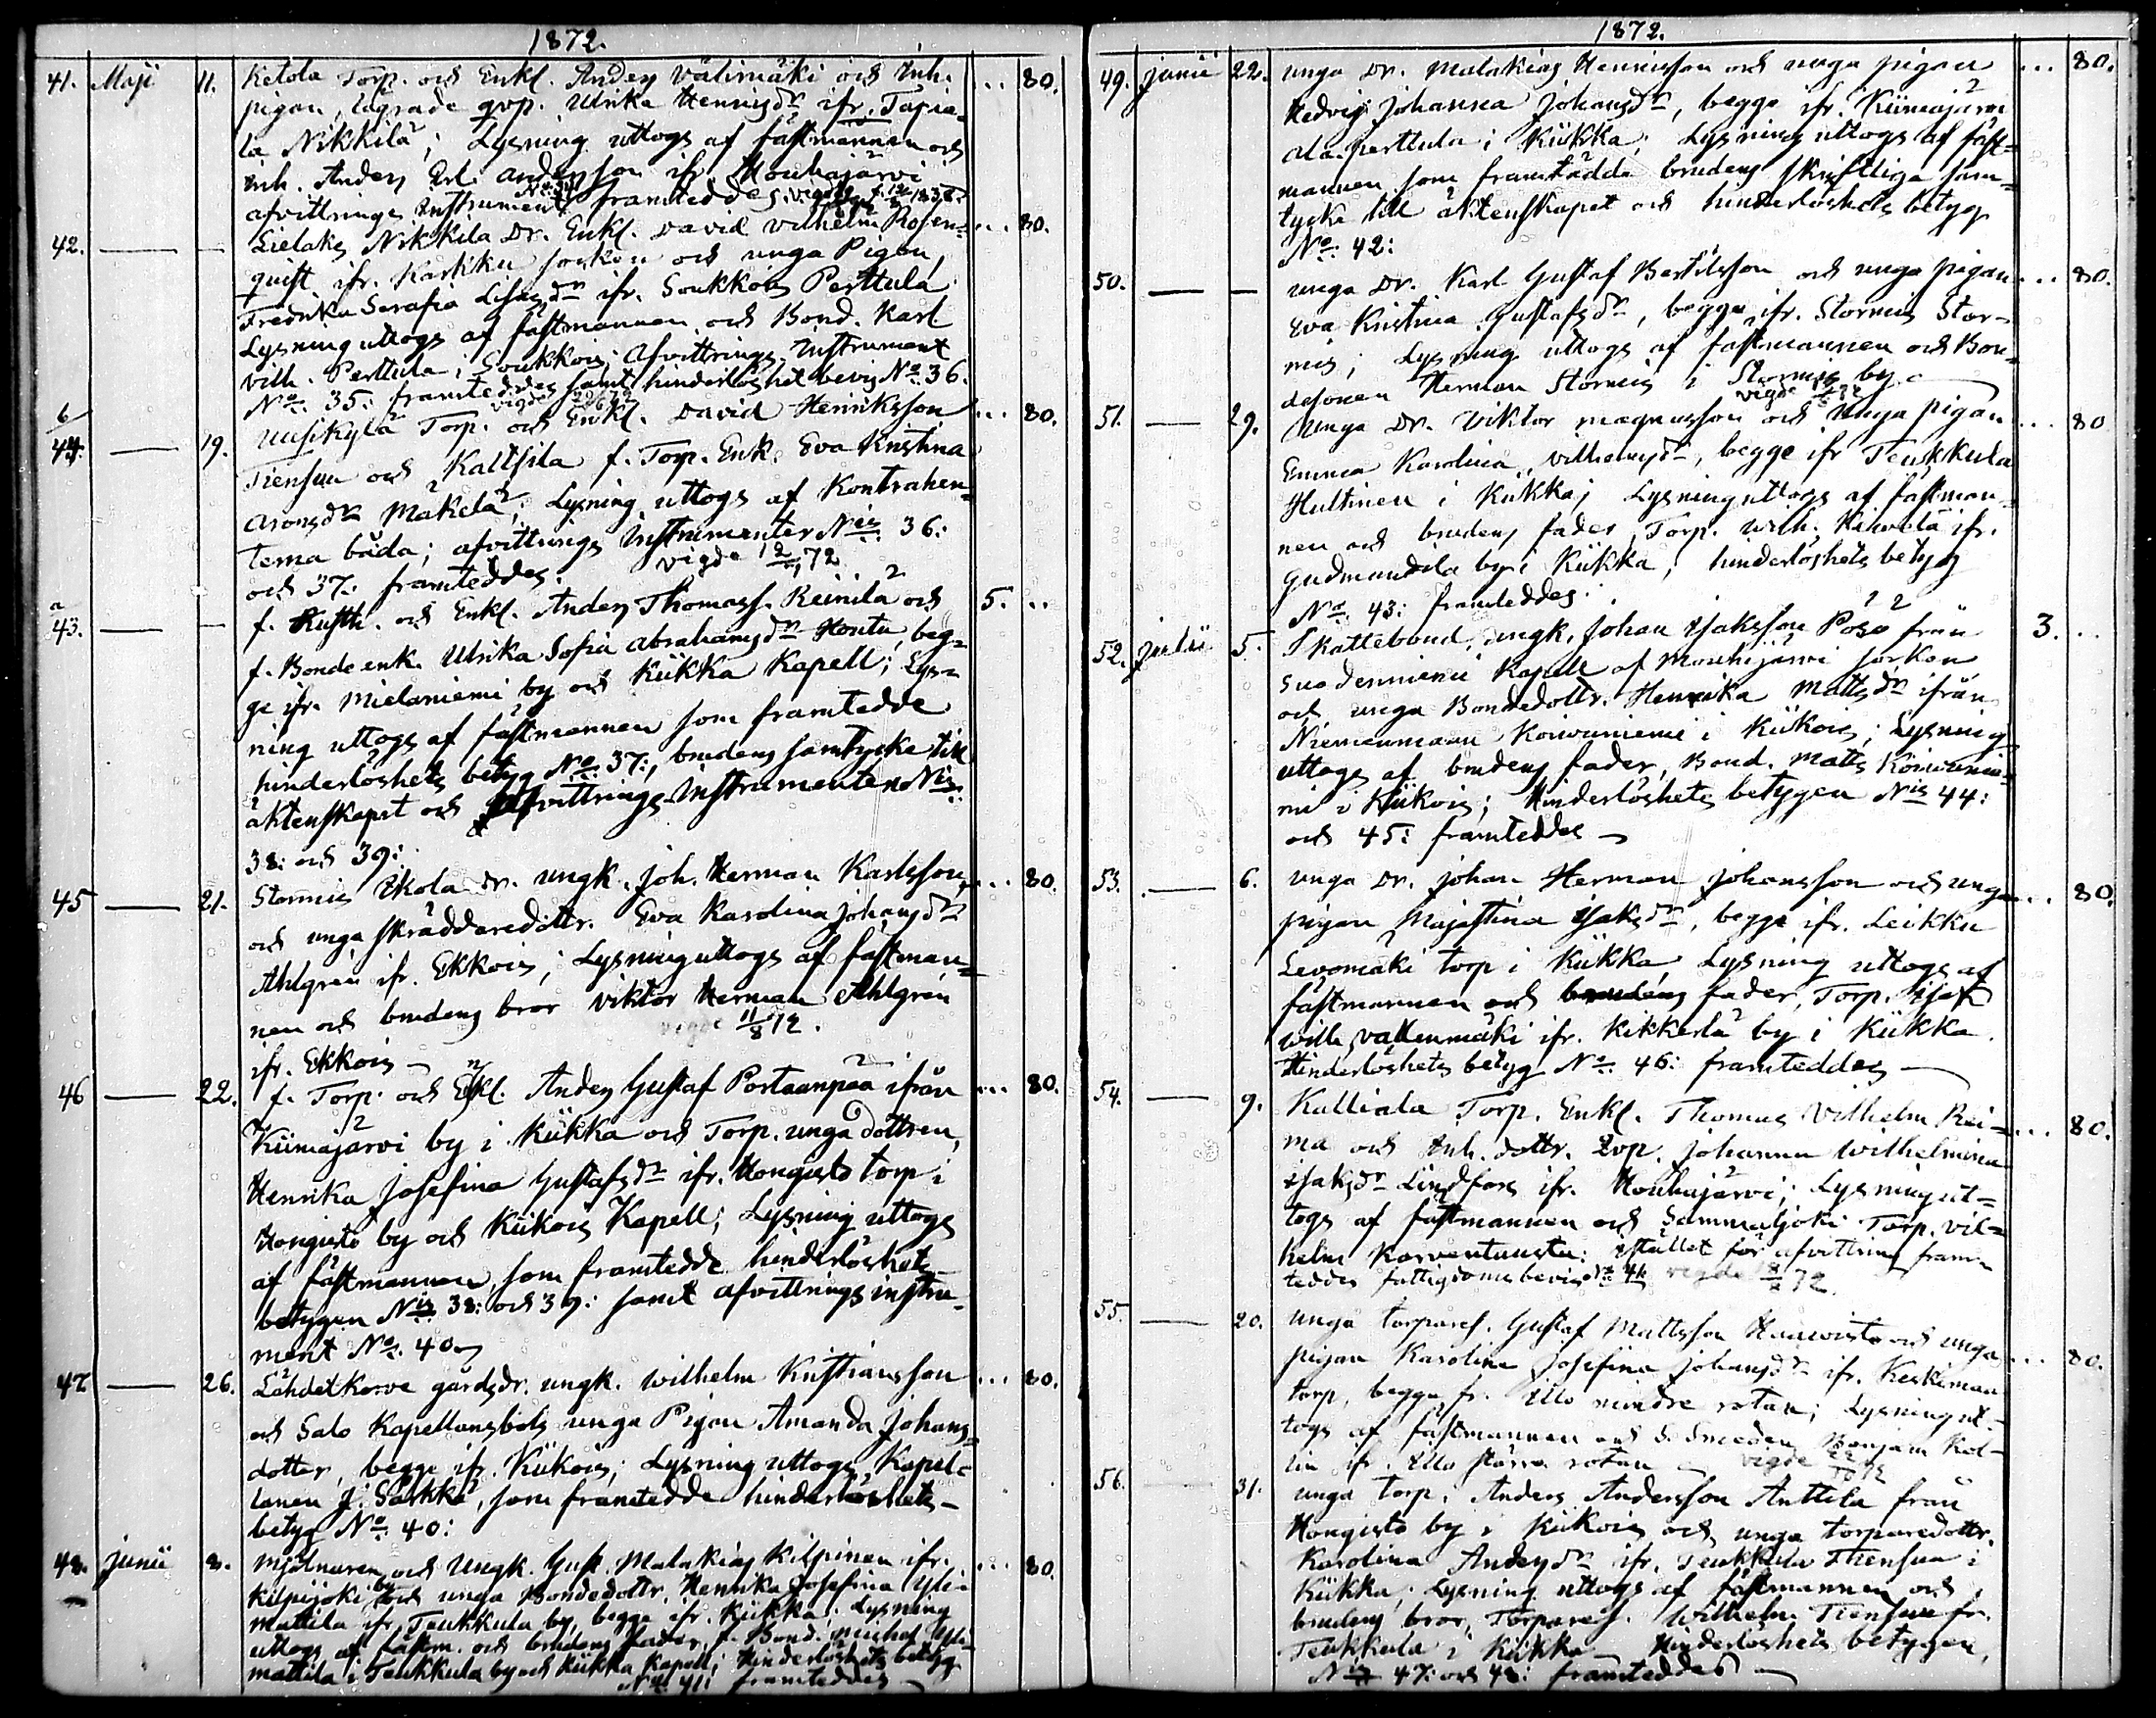 1872.
41. Maji 11. Ketola Torp. och Enkl. Anders Välimäki och Inh. ... 80.
pigan, lägrade qvp. Ulrika Henrigsdr ifr. Tapia-
la Nikkilä; Lysning uttogs af fästmannen och
Inh. Anders Erl. andersson ifr. Mouhajärvi
afvittrings Instrument framteddes.
42. — — Lielaks Nikkila Dr. Enkl. David Vilhelm Rosen- ... 80.
qvist ifr. Karkku socken och unga Pigan,
Fredrika Serafia ifr. Soukkois Perttula
Lysning uttogs af fästmannen och Bond. Karl
vilh. Perttula i Soukkois. Afvittrings Instrument
No. 35. framteddes samt hinderlöshet bevis No. 36.
vigde
b/44. — 19. Uusikylä Torp. och Enkl. David Henriksson ... 80.
Tiensuu och Kaltsila f. Torp. Enk. Eva Kristina
aronsdr Mäkelä; Lysning uttogs af Kontrahen-
terna båda; afvittrings Instrumenter Nis 36:
och 37: framteddes. vigde
a/43. — — f. Rusth. och Enkl. Anders Thomass. Reinilä och 5. ..
f. Bonde enk. Ulrika Sofia abrahamsdr Hontu, beg-
ge ifr. Mielaniemi by och Kiikka Kapell; Lys-
ning uttogs af fästmannen som framtedde
hinderlöshets betyg No. 37:, brudens samtycke till
äktenskapet och afvittrings Instrumenten Nis:
38: och 39:
45 — 21. Stormis Skola dr. ungk. Joh. Herman Karlsson, ... 80.
och unga skräddaredottr. Eva Karolina Johansdr
Ahlgrén ifr. Ekkois; Lysning uttogs af fästman-
nen och brudens bror Viktor Herman Ahlgrén
ifr. Ekkois — vigde 11/8 72.
46 — 22. f. Torp. och Enkl. Anders Gustaf Portaanpää ifrån ... 80.
Kiimajärvi by i Kiikka och Torp. unga dottren,
Henrika Josefina Gustafsdr ifr. Hongisto torp i
Hongisto by och Kiikois Kapell; Lysning uttogs
af fästmannen, som framtedde hinderlöshets
betygen Nis 38: och 39: samt afvittrings instru-
ment No. 40.
47 — 26. Lähdetkorve gårdsdr. ungk. Wilhelm Kristiansson ... 80.
och Salo Kapellansbols unga Pigan Amanda Johans-
dotter, begge ifr. Kiikois; Lysning uttogs Kapel-
lanen J. Sarkka, som framtedde hinderlöshets-
betyg No. 40:
48. Junii 8. Mjölnaren och Ungk. Gust. Malakias Kilpinen ifr. ... 80.
Kilpijoki by och unga Bondedottr. Henrika Josefina Yli-
mattila ifr. Teukkula by, begge ifr. Kiikka. Lysning
uttogs af fästm. och brudens fader, f. Bond. Yli-
mattila i Teukkula by och Kiikka Kapell; Hinderlöshets betyg
No. 41: framteddes
1872.
49. Junii 22. unga Dr. Malakias Henriksson och unga pigan ... 80.
Hedvig Johanna Johansdr, begge ifr. Kiimajärvi
Ala-perttula i Kiikka; Lysning uttogs af fäst-
mannen som framtädde brudens skriftliga sam-
tycke till äktenskapet och hinderlöshets betyg
No. 42:
50. — — unga Dr. Karl Gustaf Bertilsson och unga pigan ... 80.
Eva Kristina Gustafsdr, begge ifr. Stormis Stor-
mis; Lysning uttogs af fästmannen och Bon-
desonen Herman Stormis i Stormis by
vigde
51. — 29. Unga Dr. Viktor magnusson och Unga pigan ... 80
Emma Karolina, vilhelmsdr, begge ifr Teukkula
Huhtinen i Kiikka; Lysning uttogs af fästman-
nen och brudens fader, Torp. wilh. ifr.
Gudmandila by i Kiikka; hinderlöshets betyg
No. 43: framteddes.
52. Julii 5. Skattebond. ungk. Johan Isaksson Pösö från 3. ..
Suodenniemi Kapell af Mouhijärvi socken
och unga Bondedottr. Henrika Mattsdr ifrån
Niemenmaan Koivuniemi i Kiikois; Lysning
uttogs af brudens fader, Bond. Matts Koivunie-
mi i Kiikois; Hinderlöshets betygen Nis 44:
och 45: framteddes —
53. — 6. unga Dr. Johan Herman Johansson och unga ... 80.
pigan Majastina Isaksdr, begge ifr. Leikku
Levomäki torp i Kiikka, Lysning uttogs af
fästmannen och brudens fader, Torp. Isak
wilh. Vallenmäki ifr. Kikkerlä by i Kiikka.
Hinderlöshets betyg No. 46: framteddes —
54. — 9. Kalliala Torp. Enkl. Thomas Vilhelm Rei- ... 80.
ma och Inh. dottr. qvp. Johanna Wilhelmina
Isaksdr Lindfors ifr. Houhajärvi; Lysning ut-
togs af fästmannen och Sammaljoki Torp. Vil-
helm Korventausta: istället för afvittring fram-
teddes fattigdoms bevis No 41 vigde
55. — 20. unga torpares. Gustaf Mattsson Haavisto och unga ... 80.
pigan Karolina Josefina Johansdr ifr. Keskimaa
torp, begge fr. Illo mindre rotan; Lysning ut-
togs af fästmannen och S. Smeden Benjam Kol-
lin ifr. Illo större rotan — vigde
56. — 31. unga torp. Anders Andersson Anttila från
Hongisto by i Kiikois och unga torparedottr.
Karolina Andersdr ifr. Teukkula Tiensuu i
Kiikka; Lysning uttogs af fästmannen och
brudens bror, Torpares. Wilhelm Tiensuu fr.
Teukkula i Kiikka — Hinderlöshets betygen,
Nis 47: och 48: framteddes —